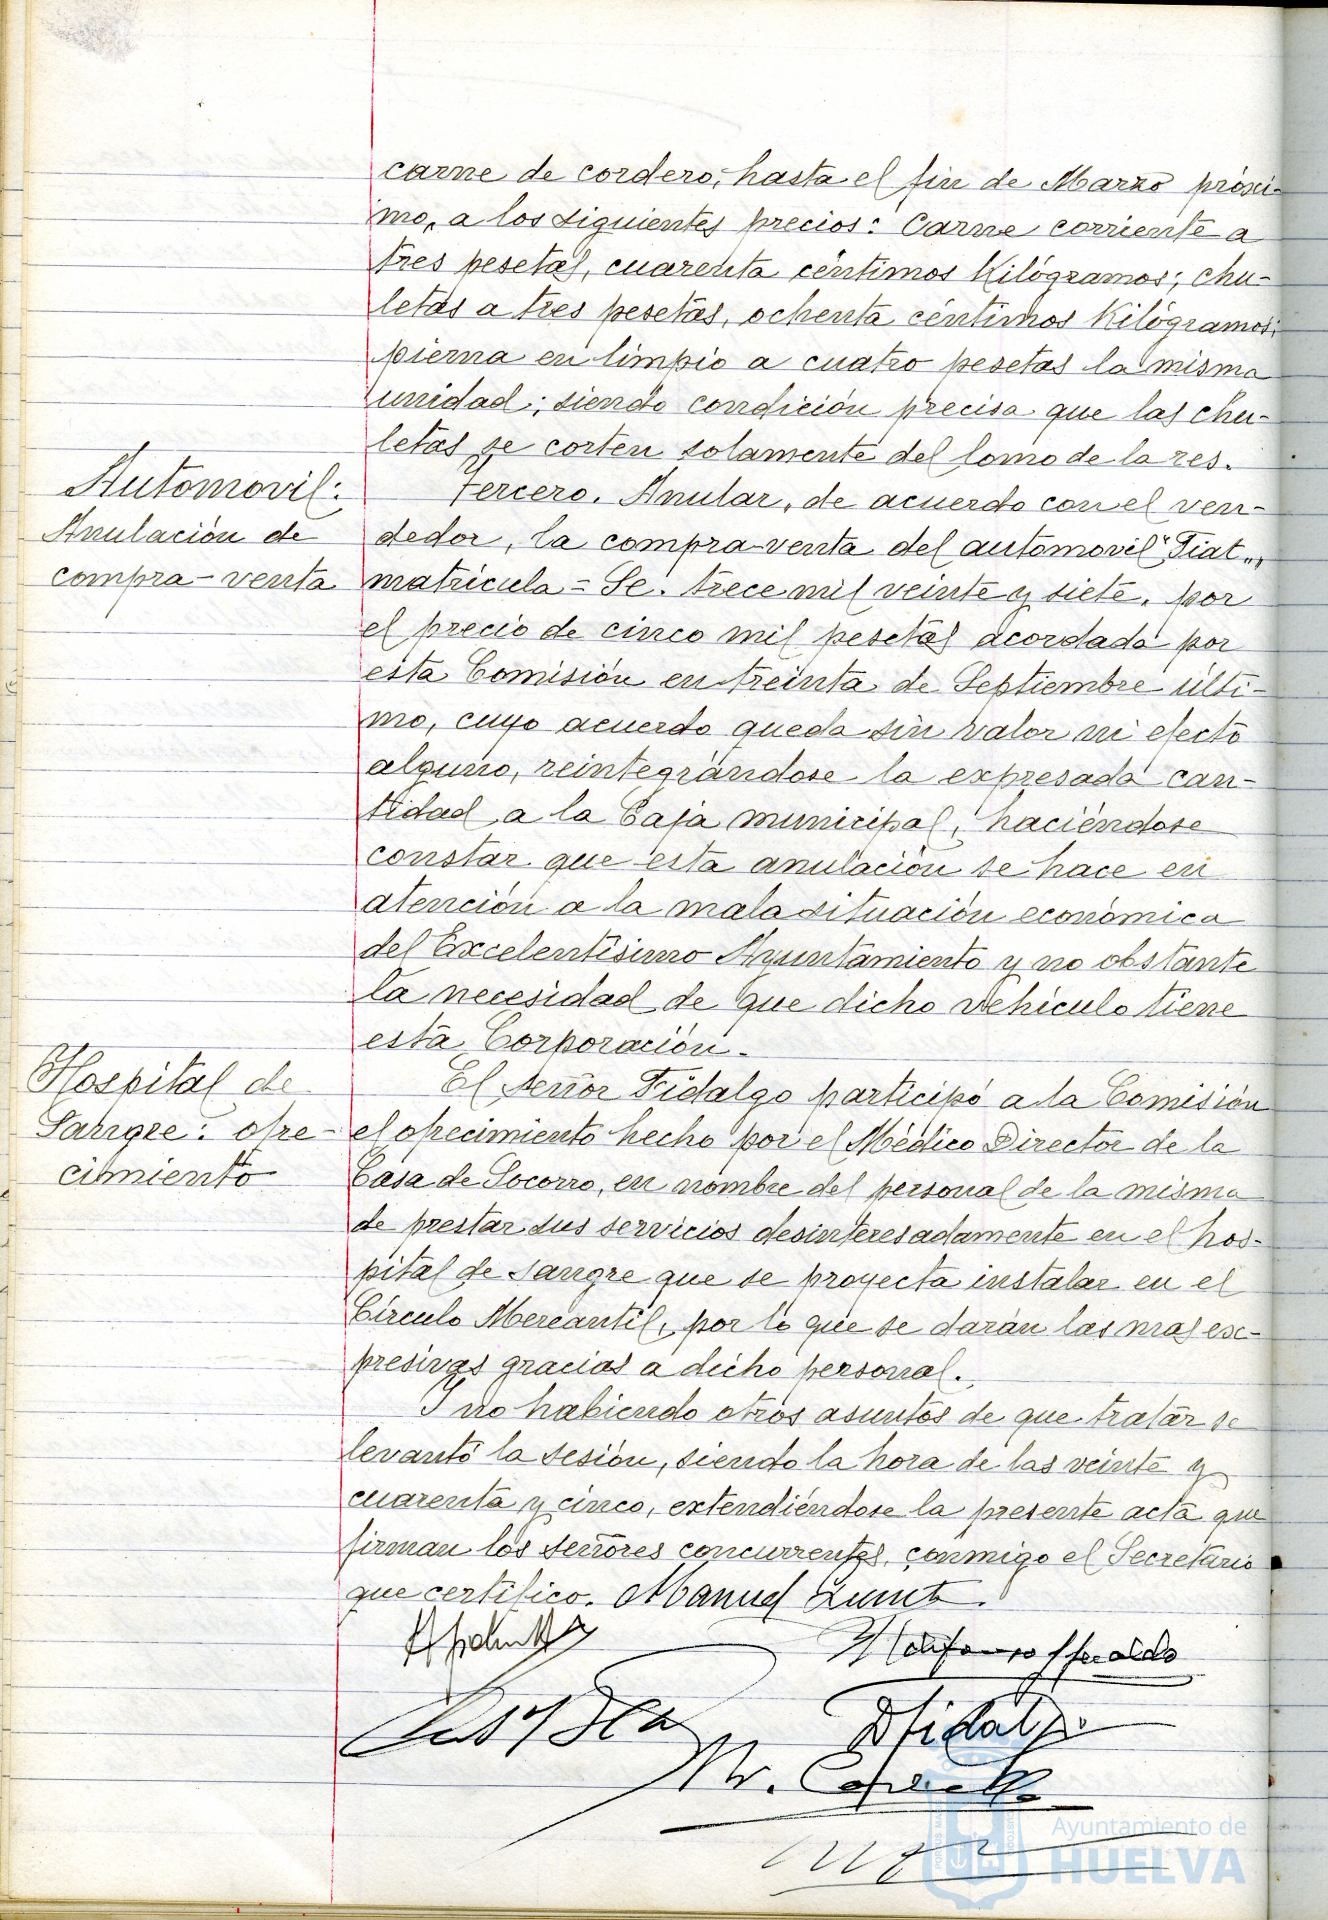 carne de cordero, hasta el fin de Marzo próxi-
mo, a los siguientes precios: Carne corriente a
tres pesetas, cuarenta céntimos Kilógramos; chu-
letas a tres pesetas, ochenta céntimos Kilógramos;
pierna en limpio a cuatro pesetas la misma
unidad; siendo condición precisa que las chu-
letas se corten solamente del lomo de la res.
Automovil:
Anulación de
compra-venta
Tercero. Anular, de acuerdo con el ven-
dedor, la compra-venta del automovil "Fiat"
matrícula = Se. trece mil veinte y siete, por
el precio de cinco mil pesetas acordada por
esta Comisión en treinta de Septiembre últi-
mo, cuyo acuerdo queda sin valor ni efecto
alguno, reintegrándose la expresada can-
tidad a la Caja municipal, haciéndose
constar que esta anulación se hace en
atención a la mala situación económica
del Excelentísimo Ayuntamiento y no obstante
la necesidad de que dicho vehículo tiene
esta Corporación.
Hospital de
Sangre: ofre-
cimiento
El señor Fidalgo participó a la Comisión
el ofrecimiento hecho por el Médico Director de la
Casa de Socorro, en nombre del personal de la misma
de prestar sus servicios desinteresadamente en el hos-
pital de sangre que se proyecta instalar en el
Círculo Mercantil, por lo que se darán las mas ex-
presivas gracias a dicho personal.
Y no habiendo otros asuntos de que tratar se
levantó la sesión, siendo la hora de las veinte y
cuarenta y cinco, extendiéndose la presente acta que
firman los señores concurrentes, conmigo el Secretario
que certifico. Manuel
D Fidalgo
Ayuntamiento de
HUELVA